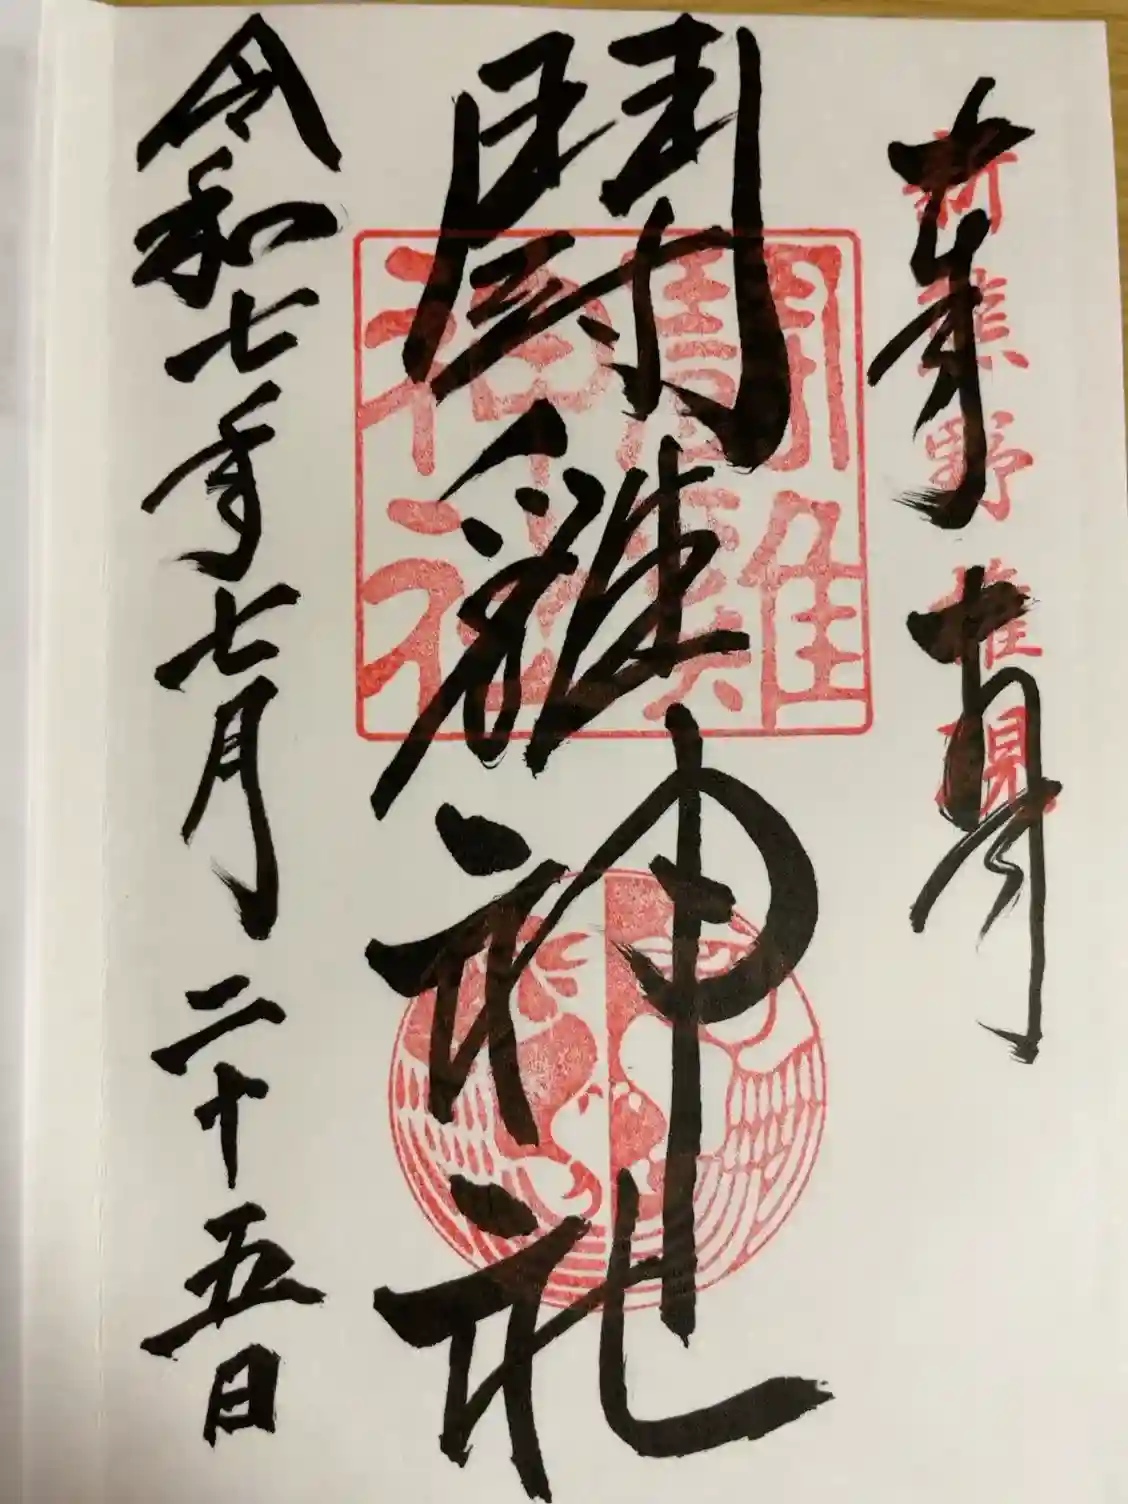 奉拝
新熊野権現
闘雞神社
闘雞神社
令和七年七月二十五日